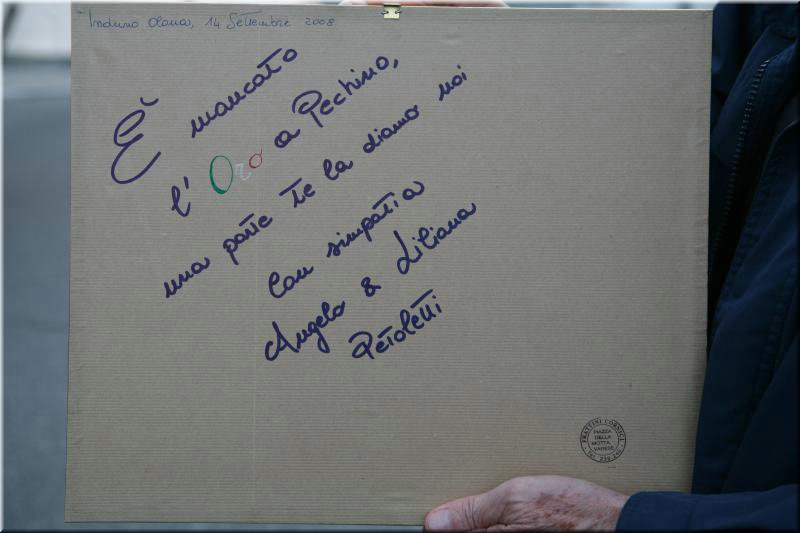 Induno Olona, 14 Settembre 2008
È mancato
l'Oro a Pechino,
una parte te la diamo noi
Con simpatia
Angelo & Liliana
Petoletti
FRATTINI CORNICI
PIAZZA
DELLA
MOTTA
VARESE